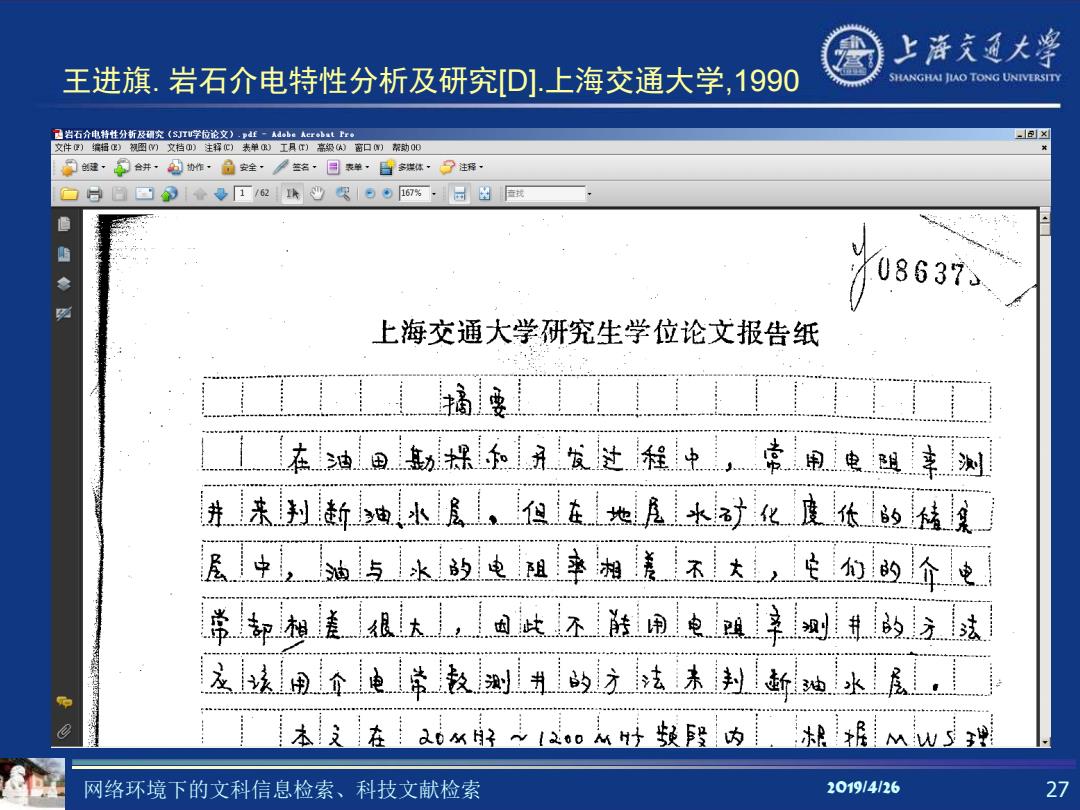 上海交通大學
SHANGHAI JIAO TONG UNIVERSITY
王进旗. 岩石介电特性分析及研究[D].上海交通大学,1990
岩石介电特性分析及研究(SJTU学位论文).pdf - Adobe Acrobat Pro
文件(F) 编辑(E) 视图(V) 文档(D) 注释(C) 表单(R) 工具(T) 高级(A) 窗口(W) 帮助(H)
创建 合并 协作 安全 签名 表单 多媒体 注释
1 / 62 167% 查找
y08637
上海交通大学研究生学位论文报告纸
摘要
在油田勘探和开发过程中，常用电阻率测
井来判断油、水层。但在地层水矿化度低的储集
层中，油与水的电阻率相差不大，它们的介电
常都相差很大，因此不能用电阻率测井的方法
应该用介电常数测井的方法来判断油水层。
本文在 20MHz～1200MHz频段内，根据MWS理
网络环境下的文科信息检索、科技文献检索
2019/4/26
27